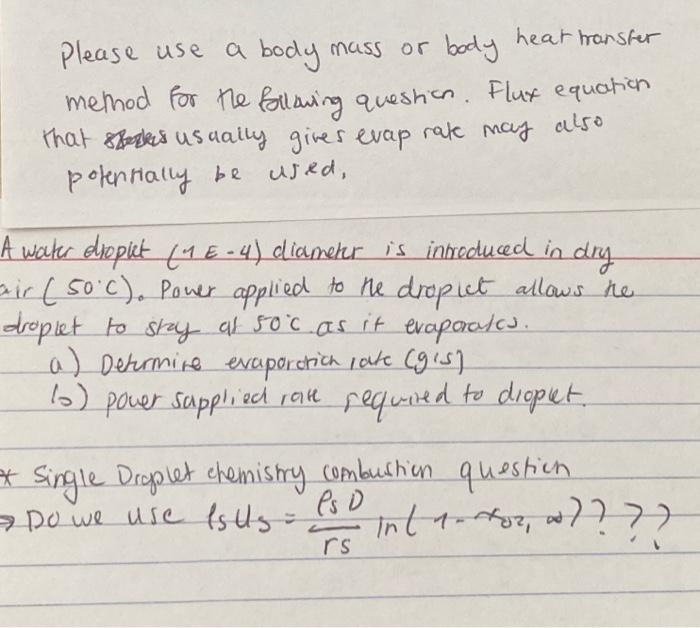 Please use a body mass or body heat transfer
method for the following question. Flux equation
that usually gives evap rate may also
potentially be used.
A water droplet (1 E-4) diameter is introduced in dry
air (50°C). Power applied to the droplet allows the
droplet to stay at 50°C as it evaporates.
a) Determine evaporation rate (g/s)
b) power supplied rate required to droplet.
* Single Droplet chemistry combustion question
→ Do we use ρsUs = ρsD/rs ln(1-x02,∞)????